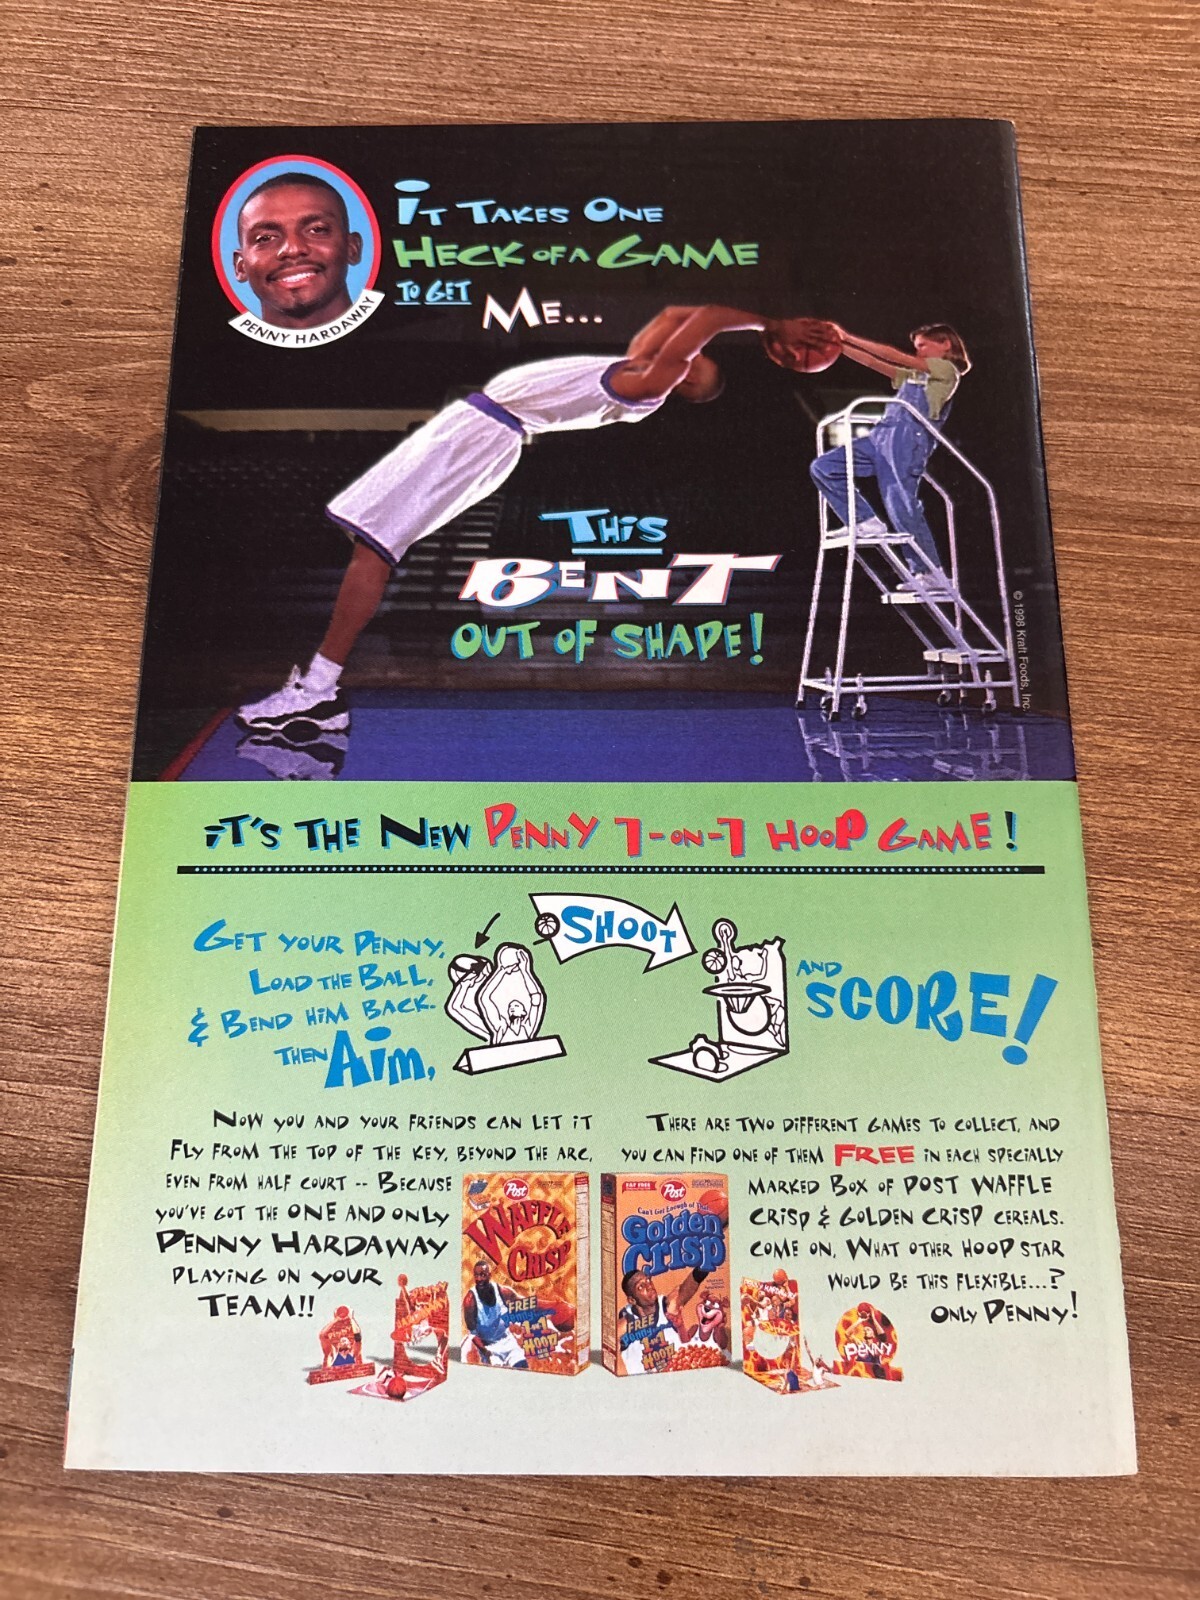 PENNY HARDAWAY
iT TAKES ONE
HECK OF A GAME
TO GET
ME...
THiS
BENT
OUT OF SHAPE!
© 1998 Kraft Foods, Inc.
iT'S THE NEW PENNY 1-ON-1 HOOP GAME!
GET YOUR PENNY,
LOAD THE BALL,
& BEND HiM BACK.
THEN AiM,
SHOOT
AND
SCORE!
NOW YOU AND YOUR FRiENDS CAN LET iT
FLY FROM THE TOP OF THE KEY, BEYOND THE ARC,
EVEN FROM HALF COURT -- BECAUSE
YOU'VE GOT THE ONE AND ONLY
PENNY HARDAWAY
PLAYiNG ON YOUR
TEAM!!
THERE ARE TWO DiFFERENT GAMES TO COLLECT, AND
YOU CAN FiND ONE OF THEM FREE iN EACH SPECiALLY
MARKED BOX OF POST WAFFLE
CRiSP & GOLDEN CRiSP CEREALS.
COME ON, WHAT OTHER HOOP STAR
WOULD BE THiS FLEXiBLE...?
ONLY PENNY!
Post
WAFFLE
CRISP
FREE
Penny
1 on 1
HOOP
FAT FREE
Post
Can't Get Enough of That
Golden
Crisp
FREE
Penny
1 on 1
HOOP
PENNY